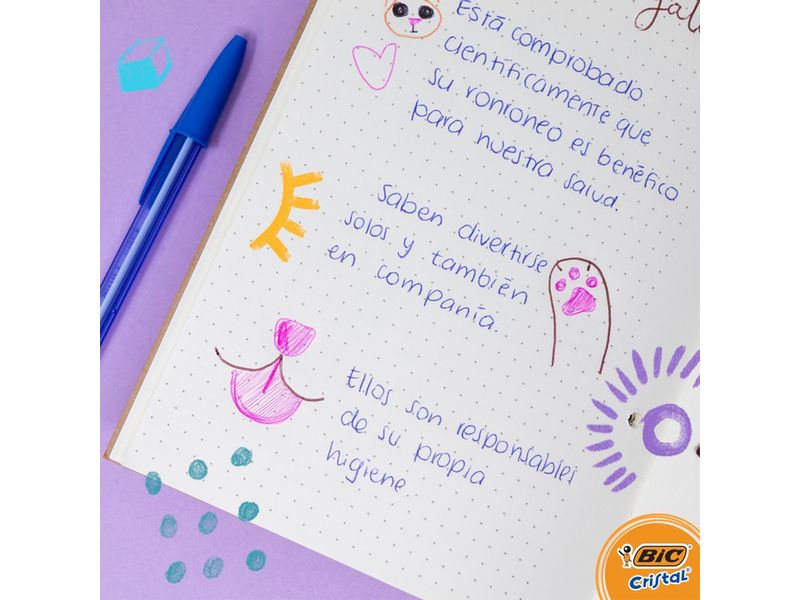 Está comprobado
científicamente que
su ronroneo es benéfico
para nuestra salud.
Saben divertirse
solos y también
en compañía.
Ellos son responsables
de su propia
higiene
BIC
Cristal